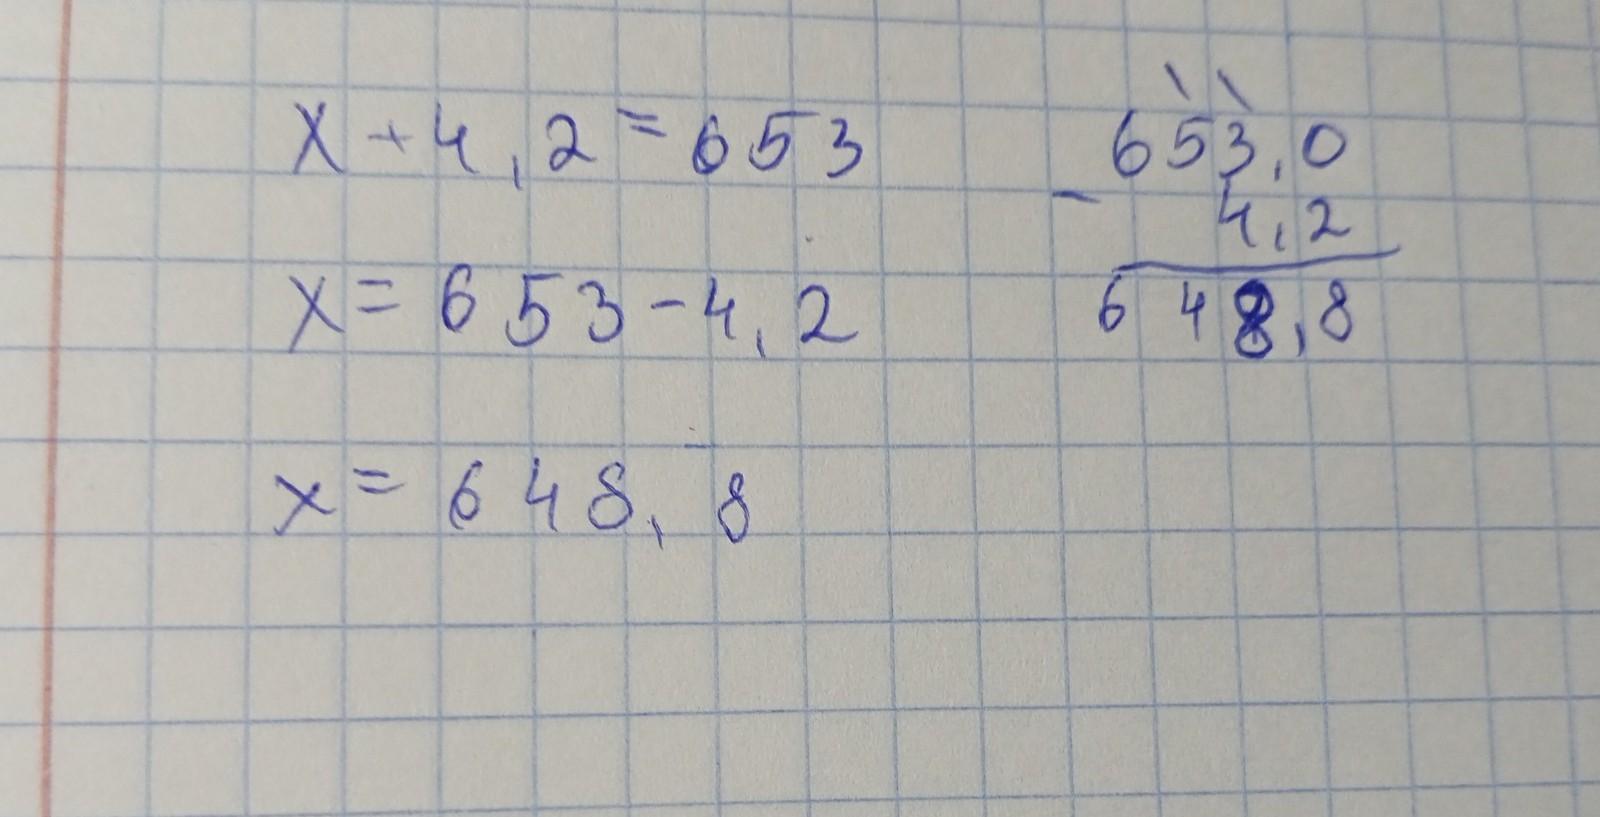 x + 4,2 = 653
x = 653 - 4,2
x = 648,8
653,0
- 4,2
648,8